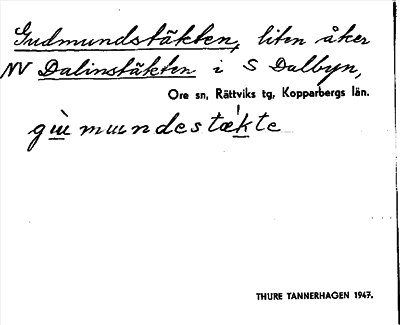 Gudmundstäkten, liten åker
NV Dalinstäkten i S Dalbyn,
Ore sn, Rättviks tg, Kopparbergs län.
gùmundestækte
THURE TANNERHAGEN 1947.